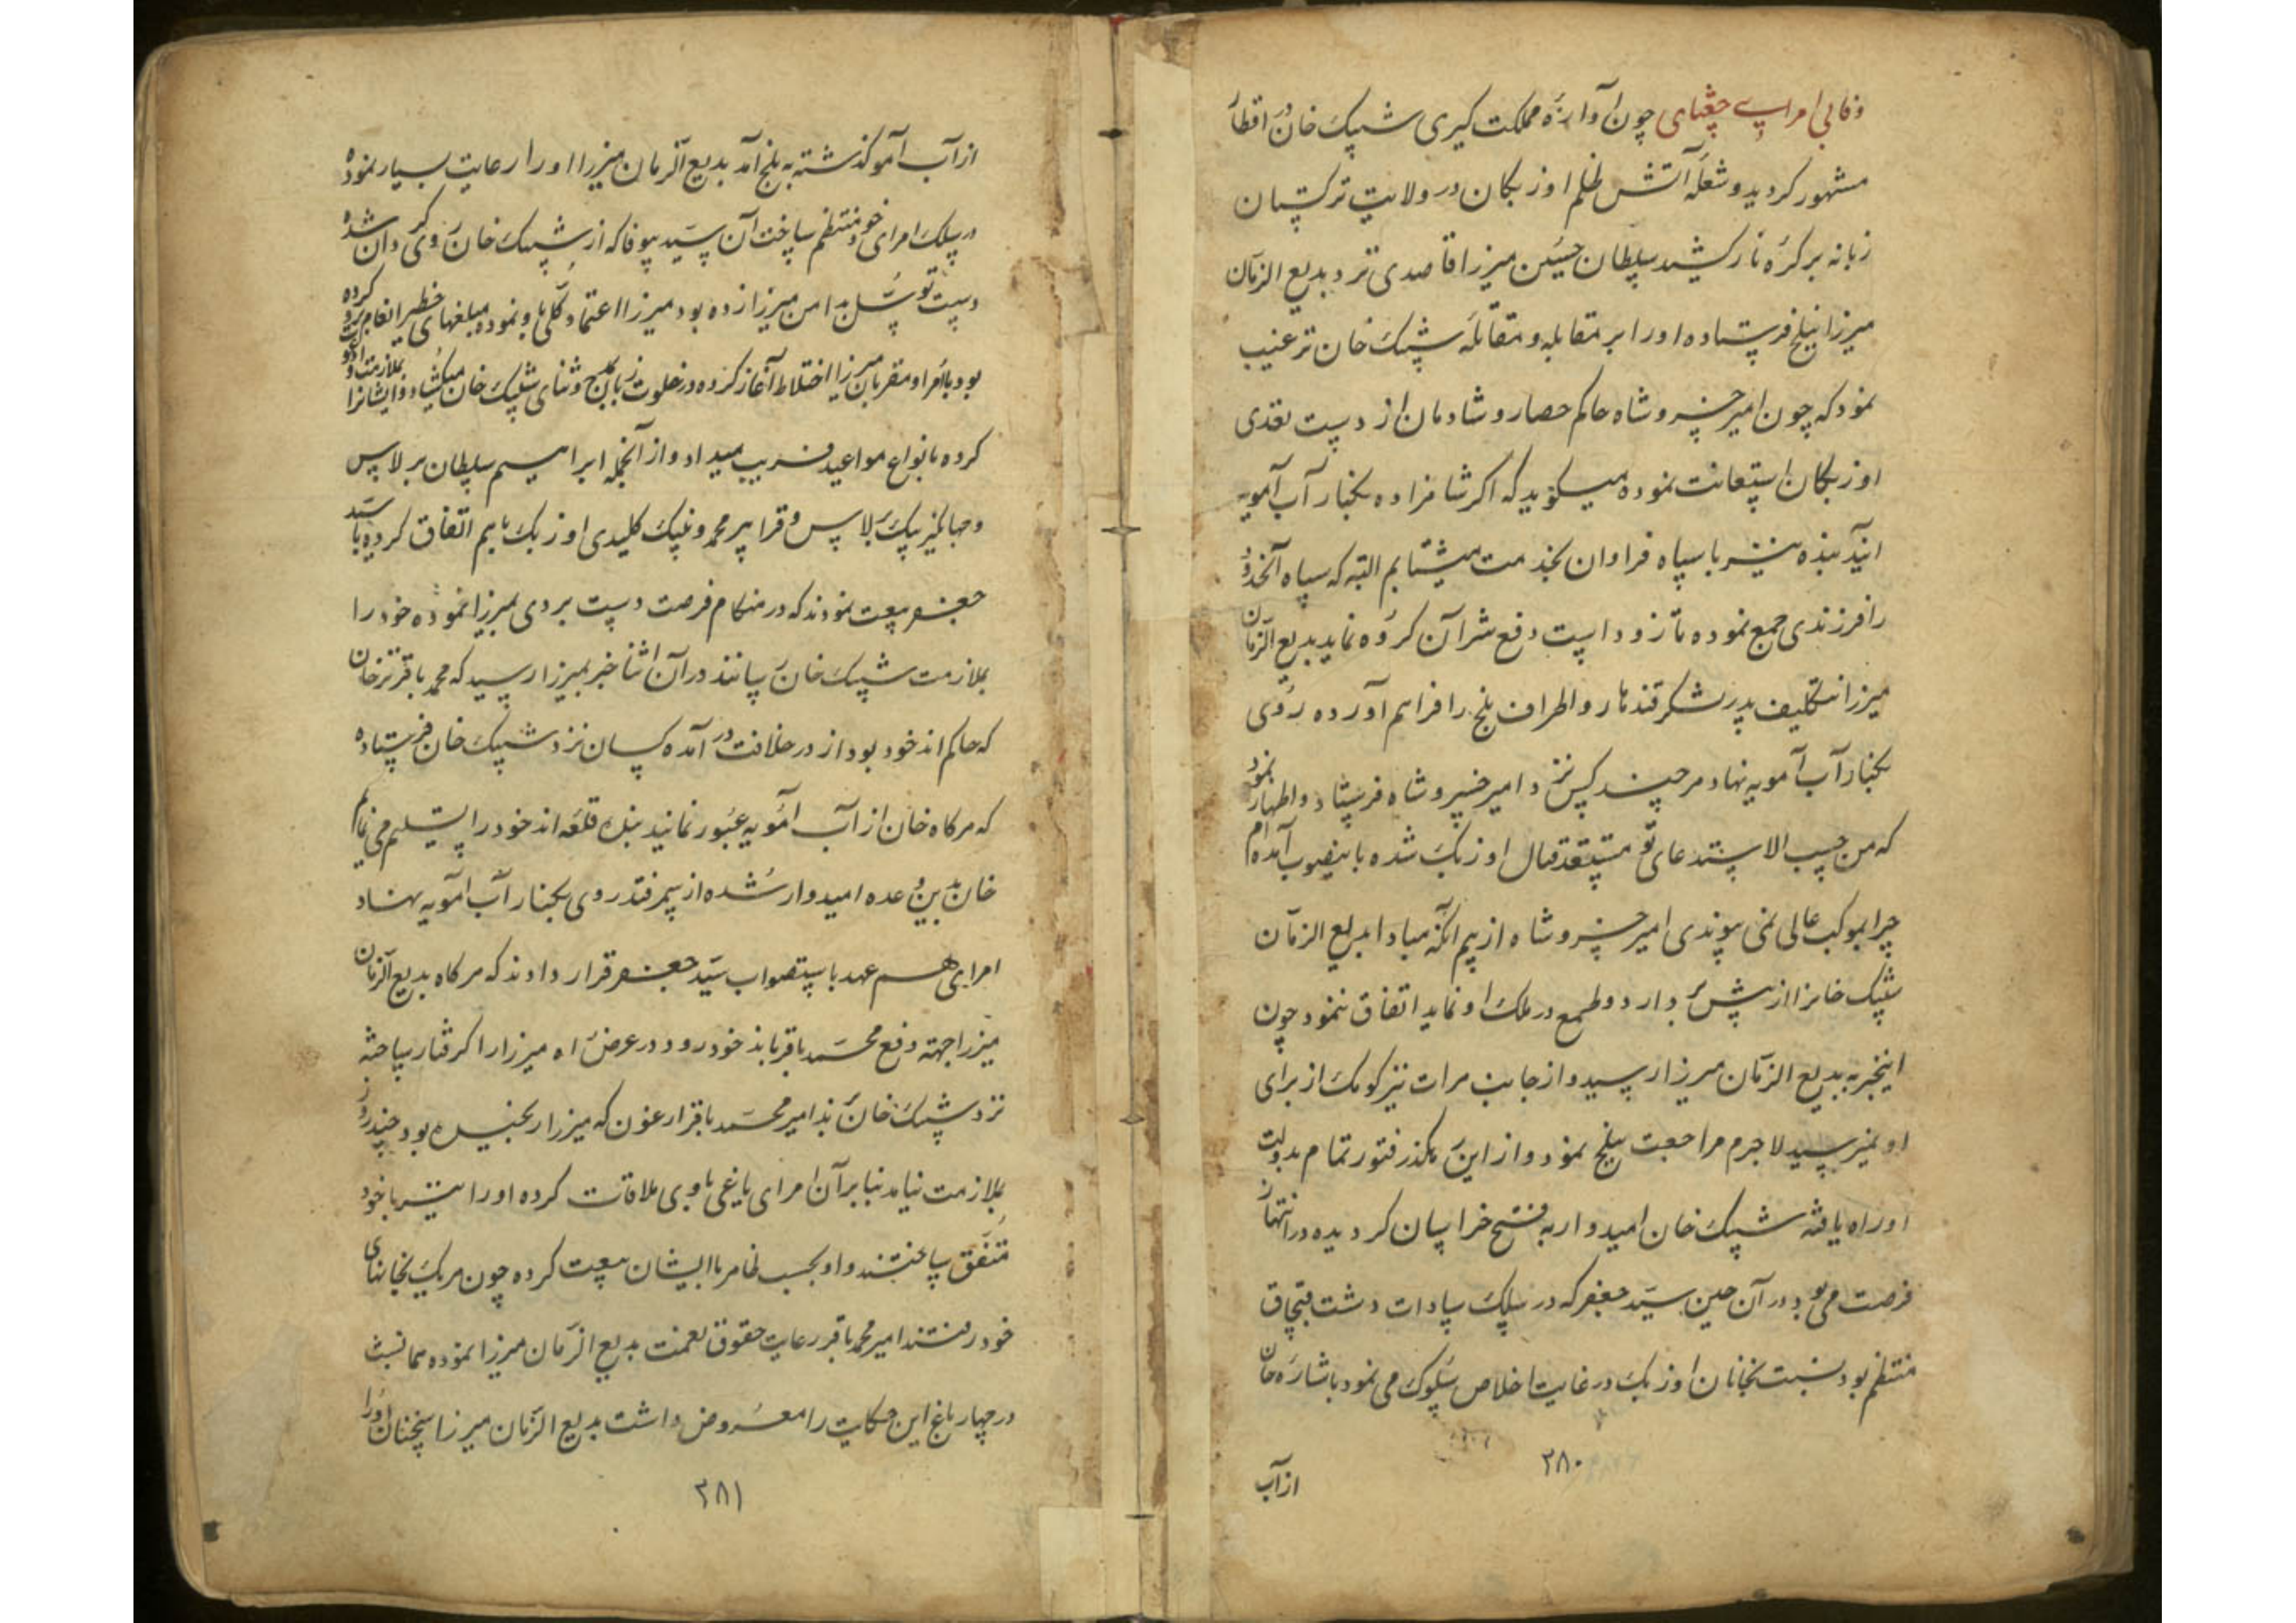 وفائی امرای چغتای چون آوازهٔ مملکت کیری شیبک خان در اقطار
مشهور کردید و شعلهٔ آتش ظلم اوزبکان در ولایت ترکستان
زبانه بر کرهٔ نار کشید سلطان حسین میرزا قاصدی نزد بدیع الزمان
میرزا ببلخ فرستاده اورا بر مقابله و مقاتلهٔ شیبک خان ترغیب
نمود که چون امیر خسرو شاه حاکم حصار و شادمان از دست تعدی
اوزبکان استعانت نموده میکوید که اکر شاهزاده بکنار آب آمویه
آیند بنده نیز با سپاه فراوان بخدمت میشتابم البته که سپاه آنحدود
را فرزندی جمع نموده تا زود است دفع شر آن کروه نماید بدیع الزمان
میرزا بتکلیف پدر لشکر قندهار و اطراف بلخ را فراهم آورده روی
بکنار آب آمویه نهاد هر چند کس نزد امیر خسرو شاه فرستاد و اظهار نمود
که من حسب الاستدعای تو مستعد قتال اوزبک شده باینصوب آمده‌ام
چرا بموکب عالی نمی پیوندی امیر خسرو شاه از بیم آنکه مبادا بدیع الزمان
شیبک خانرا از پیش بردارد و طمع در ملک او نماید اتفاق ننمود چون
اینخبر به بدیع الزمان میرزا رسید و از جانب هرات نیز کومک از برای
او نمیرسید لاجرم مراجعت ببلخ نمود و از این رهکذر فتور تمام بدولت
او راه یافته شیبک خان امیدوار به فتح خراسان کردیده در انتهاز
فرصت می بود در آن حین سید جعفر که در سلک سادات دشت قبچاق
منتظم بود نسبت بخانان اوزبک در غایت اخلاص سلوک می نمود باشارهٔ خان
۲۸۰
از آب
از آب آمو کذشته به بلخ آمد بدیع الزمان میرزا اورا رعایت بسیار نموده
در سلک امرای خود منتظم ساخت آن سید بیوفا که از شیبک خان روی کردان شده
دست توسل بدامن میرزا زده بود میرزا اعتماد کلی باو نموده مبلغهای خطیر انعام کرده
بود با امرا و مقربان میرزا اختلاط آغاز کرده در خلوت زبان بمدح و ثنای شیبک خان میکشاد و ایشانرا بملازمت او
کرده بانواع مواعید فریب میداد و از آنجمله ابراهیم سلطان برلاس
و جهانکیر بیک برلاس و قرا پیر محمد و بیک کلیدی اوزبک باهم اتفاق کرده با سید
جعفر بیعت نمودند که در هنکام فرصت دست بردی بمیرزا نموده خود را
بملازمت شیبک خان رسانند در آن اثنا خبر بمیرزا رسید که محمد باقر ترخان
که حاکم اندخود بود از در خلافت در آمده کسان نزد شیبک خان فرستاده
که هر کاه خان از آب آمویه عبور نمایند بنده قلعه اندخود را تسلیم می نمایم
خان بدین وعده امیدوار شده از سمرقند روی بکنار آب آمویه نهاد
امرای هم عهد باستصواب سید جعفر قرار دادند که هر کاه بدیع الزمان
میرزا جهته دفع محمد باقر باندخود رود در عرض راه میرزا را کرفتار ساخته
نزد شیبک خان برند امیر محمد باقر ارغون که میرزا رنجیده بود چند روز
بملازمت نیامد بنابر آن امرای یاغی باوی ملاقات کرده اورا نیز با خود
متفق ساختند و او بحسب ظاهر با ایشان بیعت کرده چون هریک بخانهای
خود رفتند امیر محمد باقر رعایت حقوق نعمت بدیع الزمان میرزا نموده همانشب
در چهار باغ این حکایت را معروض داشت بدیع الزمان میرزا سخنان اورا
۲۸۱